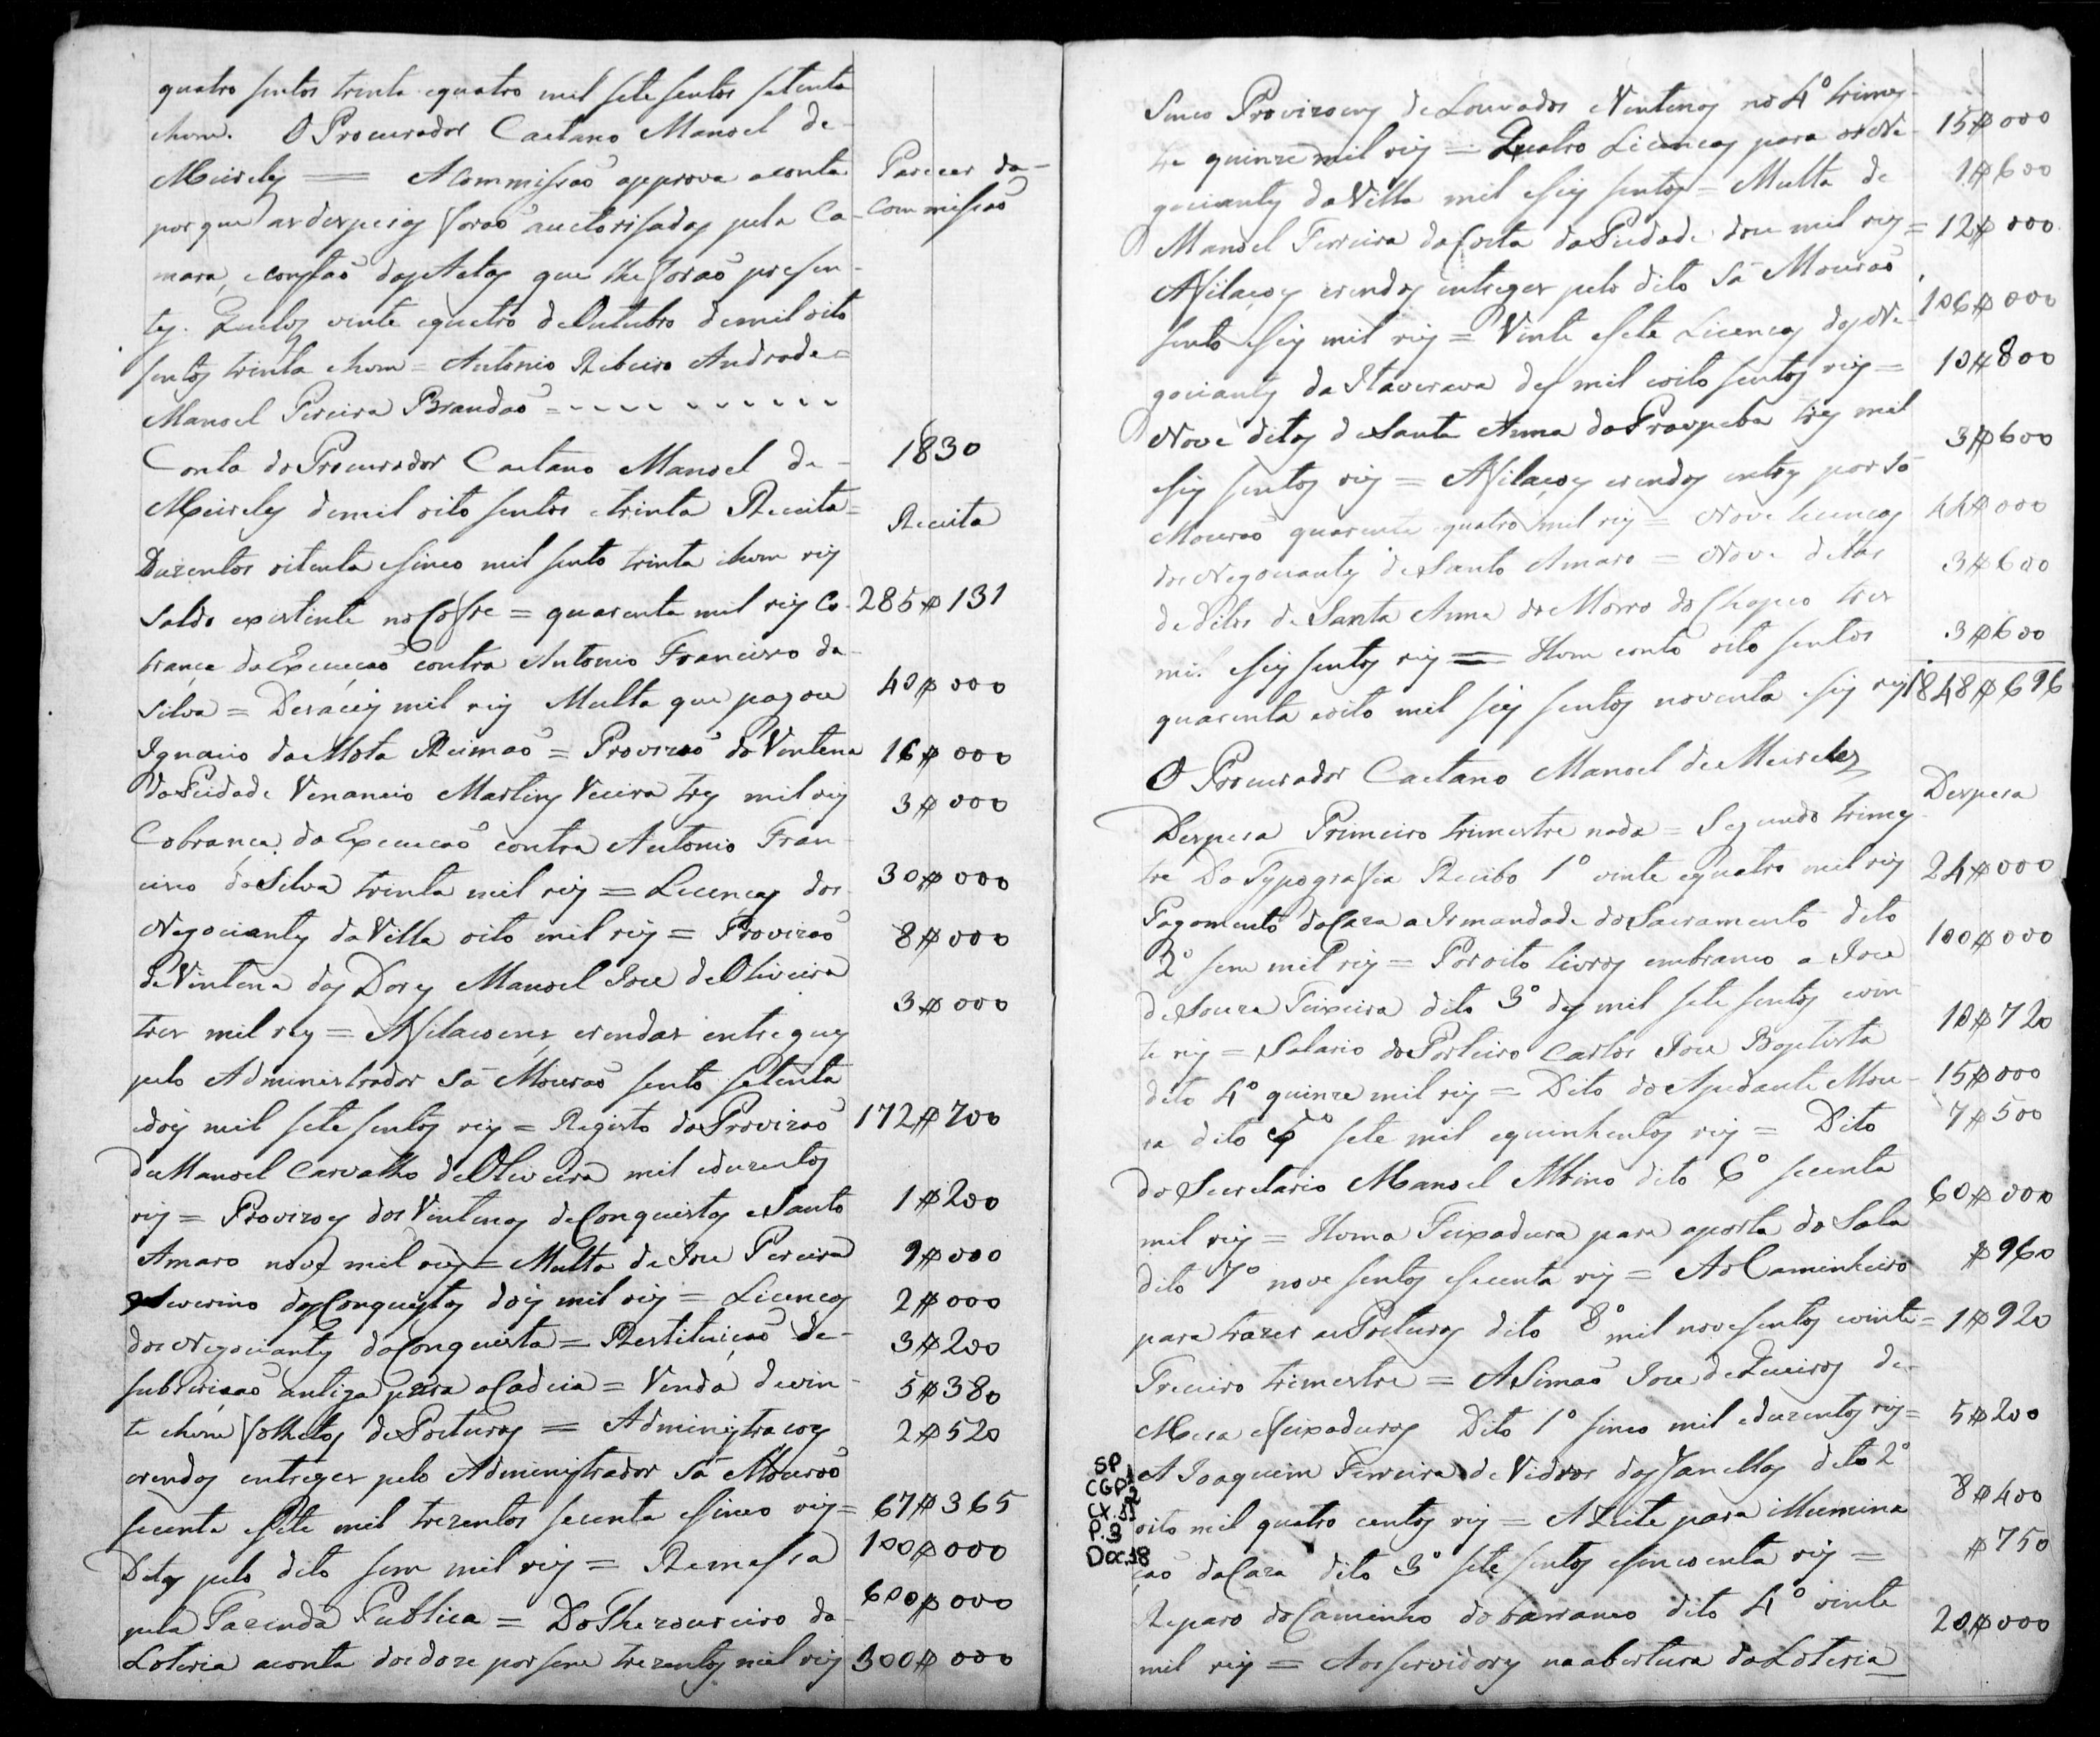 quatro sentos trinta equatro mil sete sentos setenta
ehum. O Procurador Caetano Manoel de-
Meireles = A Commissaõ approva aconta Parecer da-
por que as despesas foraõ auctorisadas pela Ca- Commissaõ
mara, e constaõ das Actas que lhe foraõ presen-
tes. Queluz vinte equatro de Outubro demil oito
sentos trinta ehum = Antonio Ribeiro Andrade =
Manoel Pereira Brandaõ =
Conta do Procurador Caetano Manoel de- 1830
Meireles demil oito sentos etrinta Receita= Receita
Duzentos oitenta esinco mil sento trinta ehum reis
Saldo existente no Cofre = quarenta mil reis Co- 285$131
brança da Execuçaõ contra Antonio Francisco da-
Silva = Dezaceis mil reis Multa que pagou 40$000
Ignacio da Mota Reimaõ = Provizaõ do Ventena 16$000
da Peidade Venancio Martins Vieira tres mil reis 3$000
Cobrança da Execucaõ contra Antonio Fran-
cisco da Silva trinta mil reis = Licencas dos 30$000
Negociantes da Villa oito mil reis = Provizaõ 8$000
de Vintena das Dores Manoel Jose de Oliveira
tres mil reis = Afilacoens erendas entregues 3$000
pelo Administrador Sá Mouraõ sento setenta
edois mil sete sentos reis = Registo da Provizaõ 172$700
de Manoel Carvalho de Oliveira mil eduzentos
reis = Provizoes dos Vintenas de Conquistas e Santo 1$200
Amaro nove mil reis = Multa de Jose Pereira 9$000
Severino das Conquistas dois mil reis = Licencas 2$000
dos Negociantes da Conquista = Restituiçaõ de- 3$200
subscriçaõ antiga para a Cadeia = Venda de vin- 5$380
te ehum folhetos de Posturas = Administracoes 2$520
erendas entreges pelo Administrador Sá Mouraõ
secenta esete mil trezentos secenta esinco reis = 67$365
Ditas pelo dito sem mil reis = Remessa 100$000
pela Fazenda Publica = Do Thezoureiro da- 600$000
Loteria aconta dos doze por sem trezentos mil reis 300$000
Sinco Provizoens de Louvados e Vintenas no 4º trimes-
tre quinze mil reis = Quatro Licencas para os Ne- 15$000
gociantes da Villa mil eseis sentos = Multa de 1$600
Manoel Ferreira da Costa da Piedade doze mil reis = 12$000
Afilacoes erendas entreges pelo dito Sá Mouraõ
sento eseis mil reis = Vinte esete Licencas dos Ne- 106$000
gociantes da Itaverava des mil eoito sentos reis = 10$800
Nove ditas de Santa Anna do Paraopeba tres mil
eseis sentos reis = Afilacoes erendas entreg por Sá 3$600
Mouraõ quarenta equatro mil reis = Nove licencas 44$000
dos Negociantes de Santo Amaro = Nove ditas 3$600
de ditos de Santa Anna do Morro do Chapeo tres
mil eseis sentos reis = Hum conto oito sentos 3$600
quarenta eoito mil seis sentos noventa eseis reis 1848$696
O Procurador Caetano Manoel de Meireles
Despesa
Despesa Primeiro trimestre nada = Segundo trimes-
tre Da Typografia Recibo 1º vinte equatro mil reis 24$000
Pagamento da Caza a Irmandade do Sacramento dito
2º sem mil reis = Por oito livros embranco a Jose 100$000
de Souza Teixeira dito 3º des mil sete sentos evin-
te reis = Salario do Porteiro Carlos Jose Baptista 10$720
dito 4º quinze mil reis = Dito do Ajudante Mou- 15$000
ra dito 5º sete mil equinhentos reis = Dito 7$500
do Secretario Manoel Albino dito 6º secenta
mil reis = Huma Feixadura para aporta da Sala 60$000
dito 7º nove sentos esecenta reis = Ao Caminheiro $960
para trazer as Posturas dito 8º mil nove sentos evinte = 1$920
Treceiro trimestre = A Simaõ Jose de Queiros de-
Mesa e feixaduras Dito 1º sinco mil eduzentos reis = 5$200
A Joaquim Ferreira de Vidros das Janellas dito 2º
oito mil quatro centos reis = Azeite para illumina 8$400
çaõ da Caza dito 3º sete sentos esincoenta reis = $750
Reparo do Caminho do barranco dito 4º vinte
mil reis = Aos servidores na abertura da Loteria 20$000
SP
CGP1
2
CX.51
P.3
Doc.18